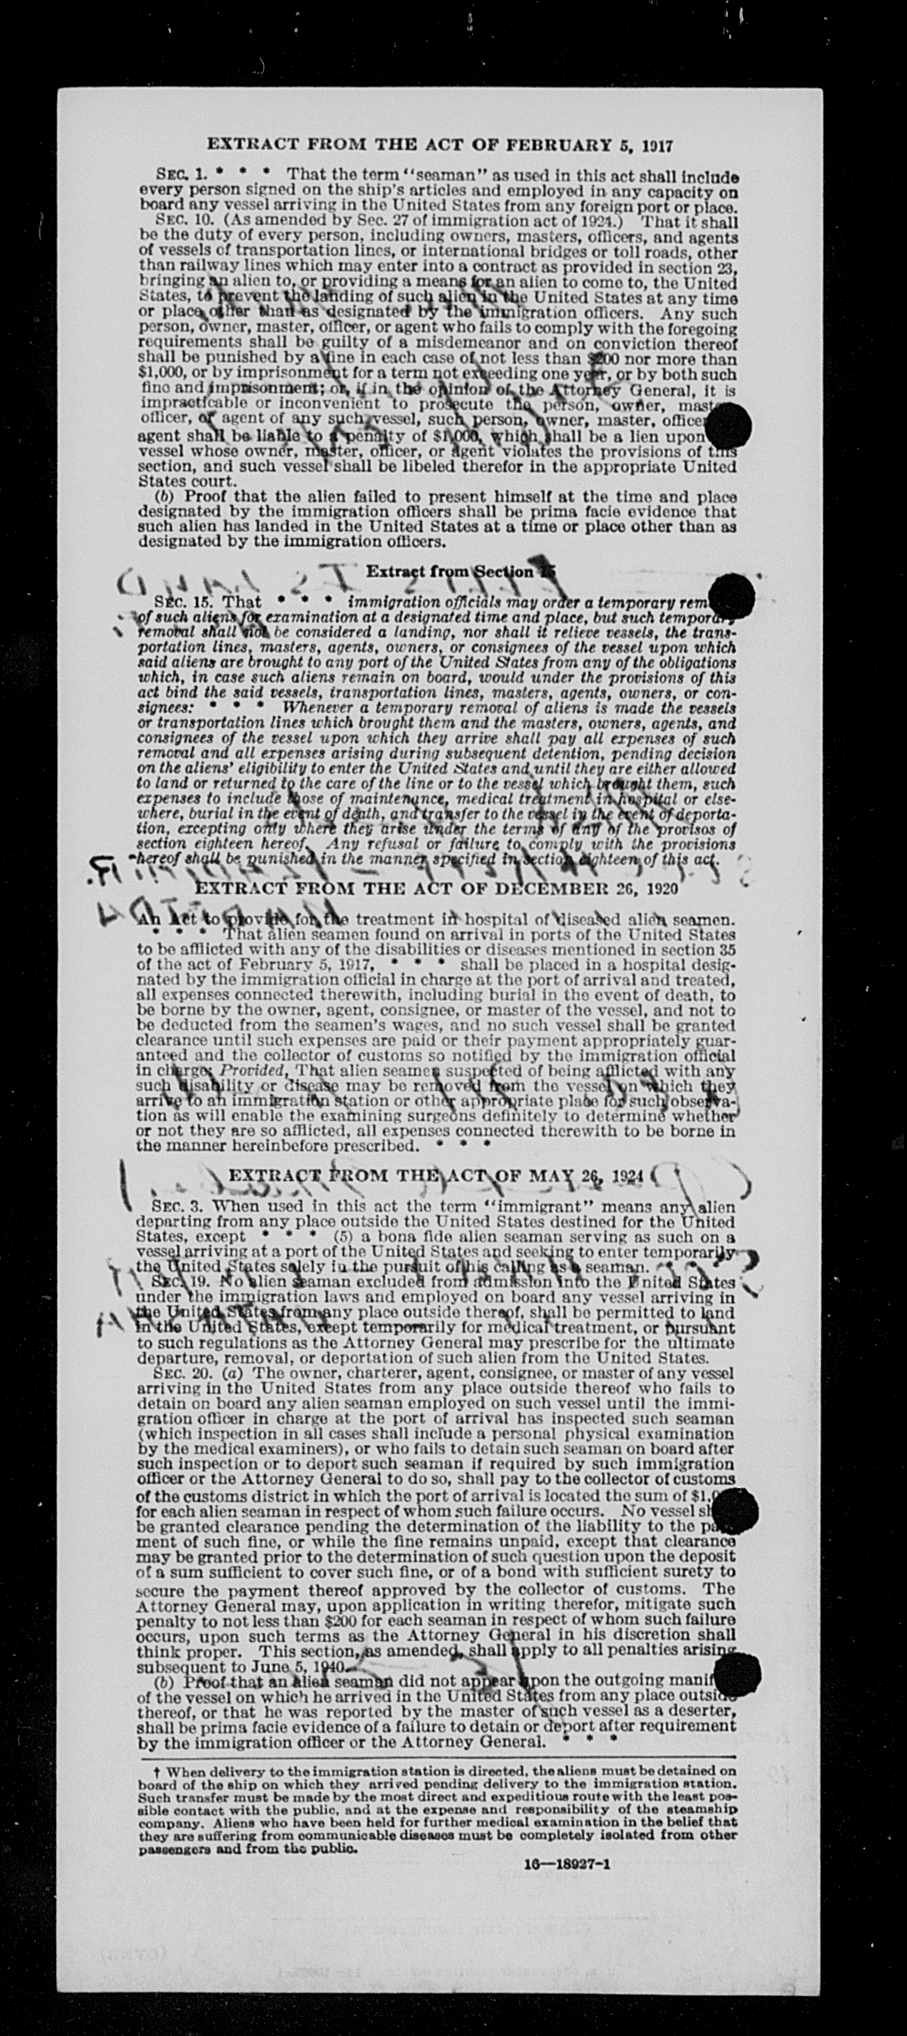 EXTRACT FROM THE ACT OF FEBRUARY 5, 1917
SEC. 1. * * * That the term "seaman" as used in this act shall include
every person signed on the ship's articles and employed in any capacity on
board any vessel arriving in the United States from any foreign port or place.
SEC. 10. (As amended by Sec. 27 of immigration act of 1924.) That it shall
be the duty of every person, including owners, masters, officers, and agents
of vessels of transportation lines, or international bridges or toll roads, other
than railway lines which may enter into a contract as provided in section 23,
bringing an alien to, or providing a means for an alien to come to, the United
States, to prevent the landing of such alien in the United States at any time
or place other than as designated by the immigration officers. Any such
person, owner, master, officer, or agent who fails to comply with the foregoing
requirements shall be guilty of a misdemeanor and on conviction thereof
shall be punished by a fine in each case of not less than $200 nor more than
$1,000, or by imprisonment for a term not exceeding one year, or by both such
fine and imprisonment; or, if in the opinion of the Attorney General, it is
impracticable or inconvenient to prosecute the person, owner, master,
officer, or agent of any such vessel, such person, owner, master, officer
agent shall be liable to a penalty of $1,000, which shall be a lien upon
vessel whose owner, master, officer, or agent violates the provisions of this
section, and such vessel shall be libeled therefor in the appropriate United
States court.
(b) Proof that the alien failed to present himself at the time and place
designated by the immigration officers shall be prima facie evidence that
such alien has landed in the United States at a time or place other than as
designated by the immigration officers.
Extract from Section 15
SEC. 15. That * * * immigration officials may order a temporary
of such aliens for examination at a designated time and place, but such temporary
removal shall not be considered a landing, nor shall it relieve vessels, the trans-
portation lines, masters, agents, owners, or consignees of the vessel upon which
said aliens are brought to any port of the United States from any of the obligations
which, in case such aliens remain on board, would under the provisions of this
act bind the said vessels, transportation lines, masters, agents, owners, or con-
signees: * * * Whenever a temporary removal of aliens is made the vessels
or transportation lines which brought them and the masters, owners, agents, and
consignees of the vessel upon which they arrive shall pay all expenses of such
removal and all expenses arising during subsequent detention, pending decision
on the aliens' eligibility to enter the United States and until they are either allowed
to land or returned to the care of the line or to the vessel which brought them, such
expenses to include those of maintenance, medical treatment in hospital or else-
where, burial in the event of death, and transfer to the vessel in the event of deporta-
tion, excepting only where they arise under the terms of any of the provisos of
section eighteen hereof. Any refusal or failure to comply with the provisions
hereof shall be punished in the manner specified in section eighteen of this act.
EXTRACT FROM THE ACT OF DECEMBER 26, 1920
An Act to provide for the treatment in hospital of diseased alien seamen.
* * * * That alien seamen found on arrival in ports of the United States
to be afflicted with any of the disabilities or diseases mentioned in section 35
of the act of February 5, 1917, * * * shall be placed in a hospital desig-
nated by the immigration official in charge at the port of arrival and treated,
all expenses connected therewith, including burial in the event of death, to
be borne by the owner, agent, consignee, or master of the vessel, and not to
be deducted from the seamen's wages, and no such vessel shall be granted
clearance until such expenses are paid or their payment appropriately guar-
anteed and the collector of customs so notified by the immigration official
in charge: Provided, That alien seamen suspected of being afflicted with any
such disability or disease may be removed from the vessel on which they
arrive to an immigration station or other appropriate place for such observa-
tion as will enable the examining surgeons definitely to determine whether
or not they are so afflicted, all expenses connected therewith to be borne in
the manner hereinbefore prescribed. * * *
EXTRACT FROM THE ACT OF MAY 26, 1924
SEC. 3. When used in this act the term "immigrant" means any alien
departing from any place outside the United States destined for the United
States, except * * * (5) a bona fide alien seaman serving as such on a
vessel arriving at a port of the United States and seeking to enter temporarily
the United States solely in the pursuit of his calling as a seaman.
SEC. 19. No alien seaman excluded from admission into the United States
under the immigration laws and employed on board any vessel arriving in
the United States from any place outside thereof, shall be permitted to land
in the United States, except temporarily for medical treatment, or pursuant
to such regulations as the Attorney General may prescribe for the ultimate
departure, removal, or deportation of such alien from the United States.
SEC. 20. (a) The owner, charterer, agent, consignee, or master of any vessel
arriving in the United States from any place outside thereof who fails to
detain on board any alien seaman employed on such vessel until the immi-
gration officer in charge at the port of arrival has inspected such seaman
(which inspection in all cases shall include a personal physical examination
by the medical examiners), or who fails to detain such seaman on board after
such inspection or to deport such seaman if required by such immigration
officer or the Attorney General to do so, shall pay to the collector of customs
of the customs district in which the port of arrival is located the sum of
for each alien seaman in respect of whom such failure occurs. No vessel
be granted clearance pending the determination of the liability to the
ment of such fine, or while the fine remains unpaid, except that clearance
may be granted prior to the determination of such question upon the deposit
of a sum sufficient to cover such fine, or of a bond with sufficient surety to
secure the payment thereof approved by the collector of customs. The
Attorney General may, upon application in writing therefor, mitigate such
penalty to not less than $200 for each seaman in respect of whom such failure
occurs, upon such terms as the Attorney General in his discretion shall
think proper. This section, as amended, shall apply to all penalties arising
subsequent to June 5, 1940.
(b) Proof that an alien seaman did not appear upon the outgoing
of the vessel on which he arrived in the United States from any place outside
thereof, or that he was reported by the master of such vessel as a deserter,
shall be prima facie evidence of a failure to detain or deport after requirement
by the immigration officer or the Attorney General. * * *
† When delivery to the immigration station is directed, the aliens must be detained on
board of the ship on which they arrived pending delivery to the immigration station.
Such transfer must be made by the most direct and expeditious route with the least pos-
sible contact with the public, and at the expense and responsibility of the steamship
company. Aliens who have been held for further medical examination in the belief that
they are suffering from communicable diseases must be completely isolated from other
passengers and from the public.
16—18927-1